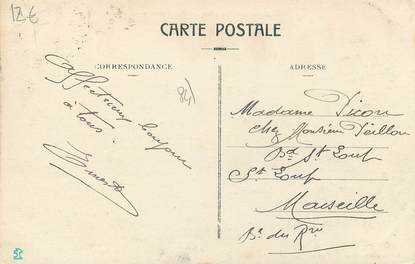 12€
CARTE POSTALE
CORRESPONDANCE
ADRESSE
84
Affectueux bonjour
à tous.
Ernest
Madame Picon
chez Monsieur Teillon
Bd St Loup
St Loup
Marseille
Bs du Rne